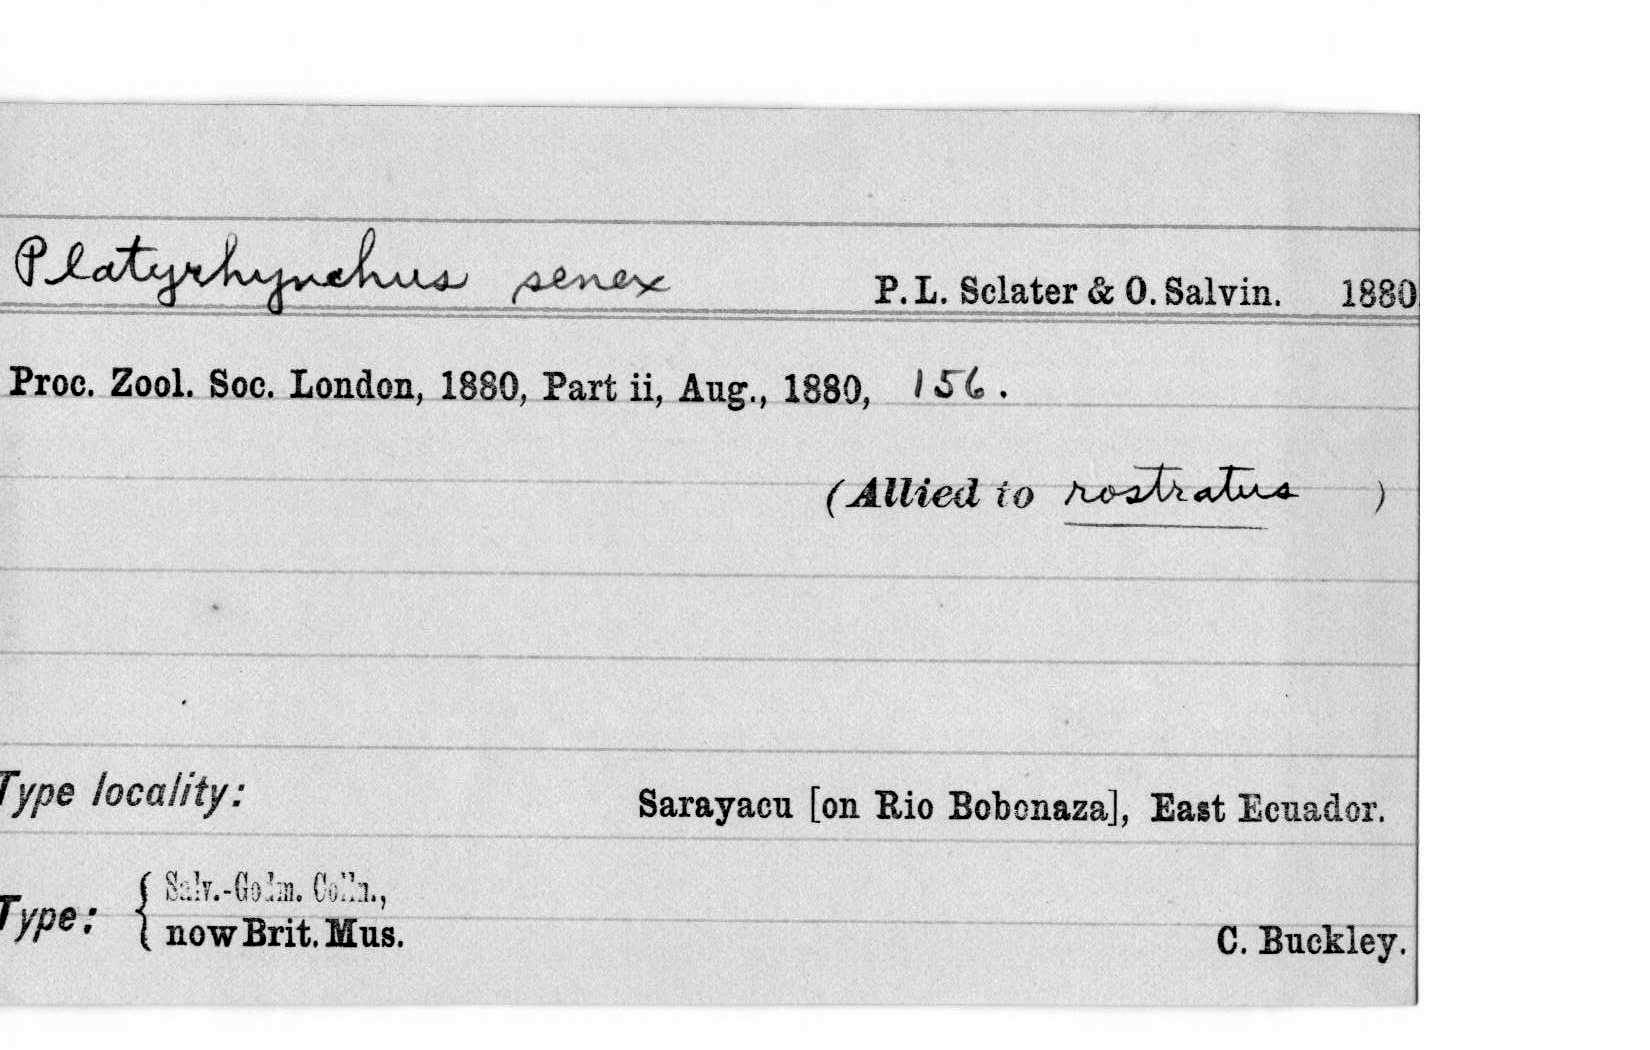 Platyrhynchus senex P. L. Sclater & O. Salvin. 1880
Proc. Zool. Soc. London, 1880, Part ii, Aug., 1880, 156.
(Allied to rostratus )
Type locality: Sarayacu [on Rio Bobonaza], East Ecuador.
Type: { Salv.-Godm. Colln.,
now Brit. Mus. C. Buckley.